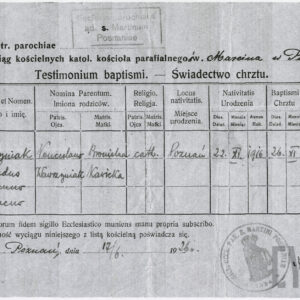 Ecclesiae parochialis
ad. s. Martinum
Posnaniae
tr. parochiae
iąg kościelnych katol. kościoła parafialnego św. Marcina w
Testimonium baptismi. — Świadectwo chrztu.
et Nomen.
o i imię.
Nomina Parentum.
Imiona rodziców.
Patris
Ojca
Matris
Matki
Religio.
Religja.
Patris
Ojca
Matris
Matki
Locus nativitatis.
Miejsce urodzenia.
Nativitatis
Urodzenia
Dies. Dzień
Mensis Miesiąc
Annus Rok
Baptismi
Chrztu
Dies Dzień
Mensis
Wacesław
Wawrzyniak
Bronisława
catl.
Poznań
22. XI 1916
26. XI
orum fidem sigillo Ecclesiastico muniens manu propria subscribo.
ność wyciągu niniejszego z listą kościelną poświadcza się.
Poznań, dnia 12/6. 1926.